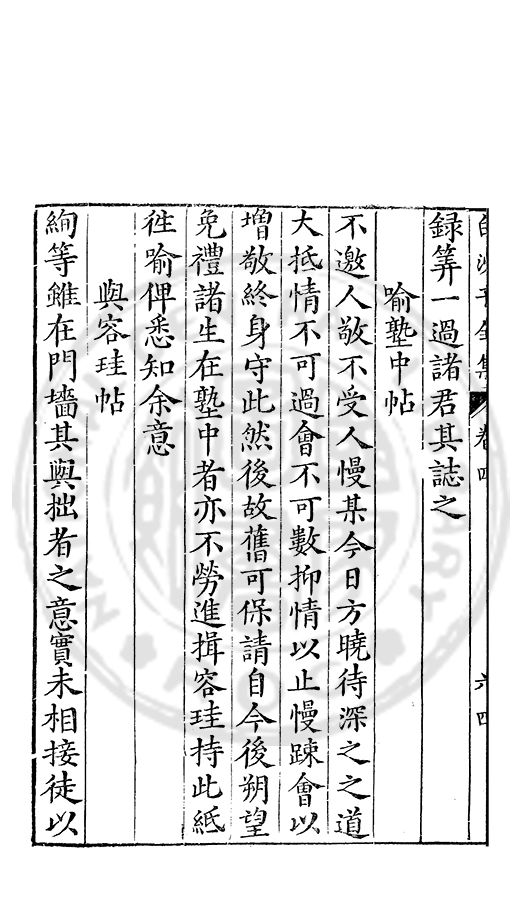 白沙子全集 卷四 六四
録筭一過諸君其誌之
喻塾中帖
不邀人敬不受人慢某今日方曉待深之之道
大抵情不可過會不可數抑情以止慢踈會以
增敬終身守此然後故舊可保請自今後朔望
免禮諸生在塾中者亦不勞進揖容珪持此紙
徃喻俾悉知余意
與容珪帖
絢等雖在門墻其與拙者之意實未相接徒以